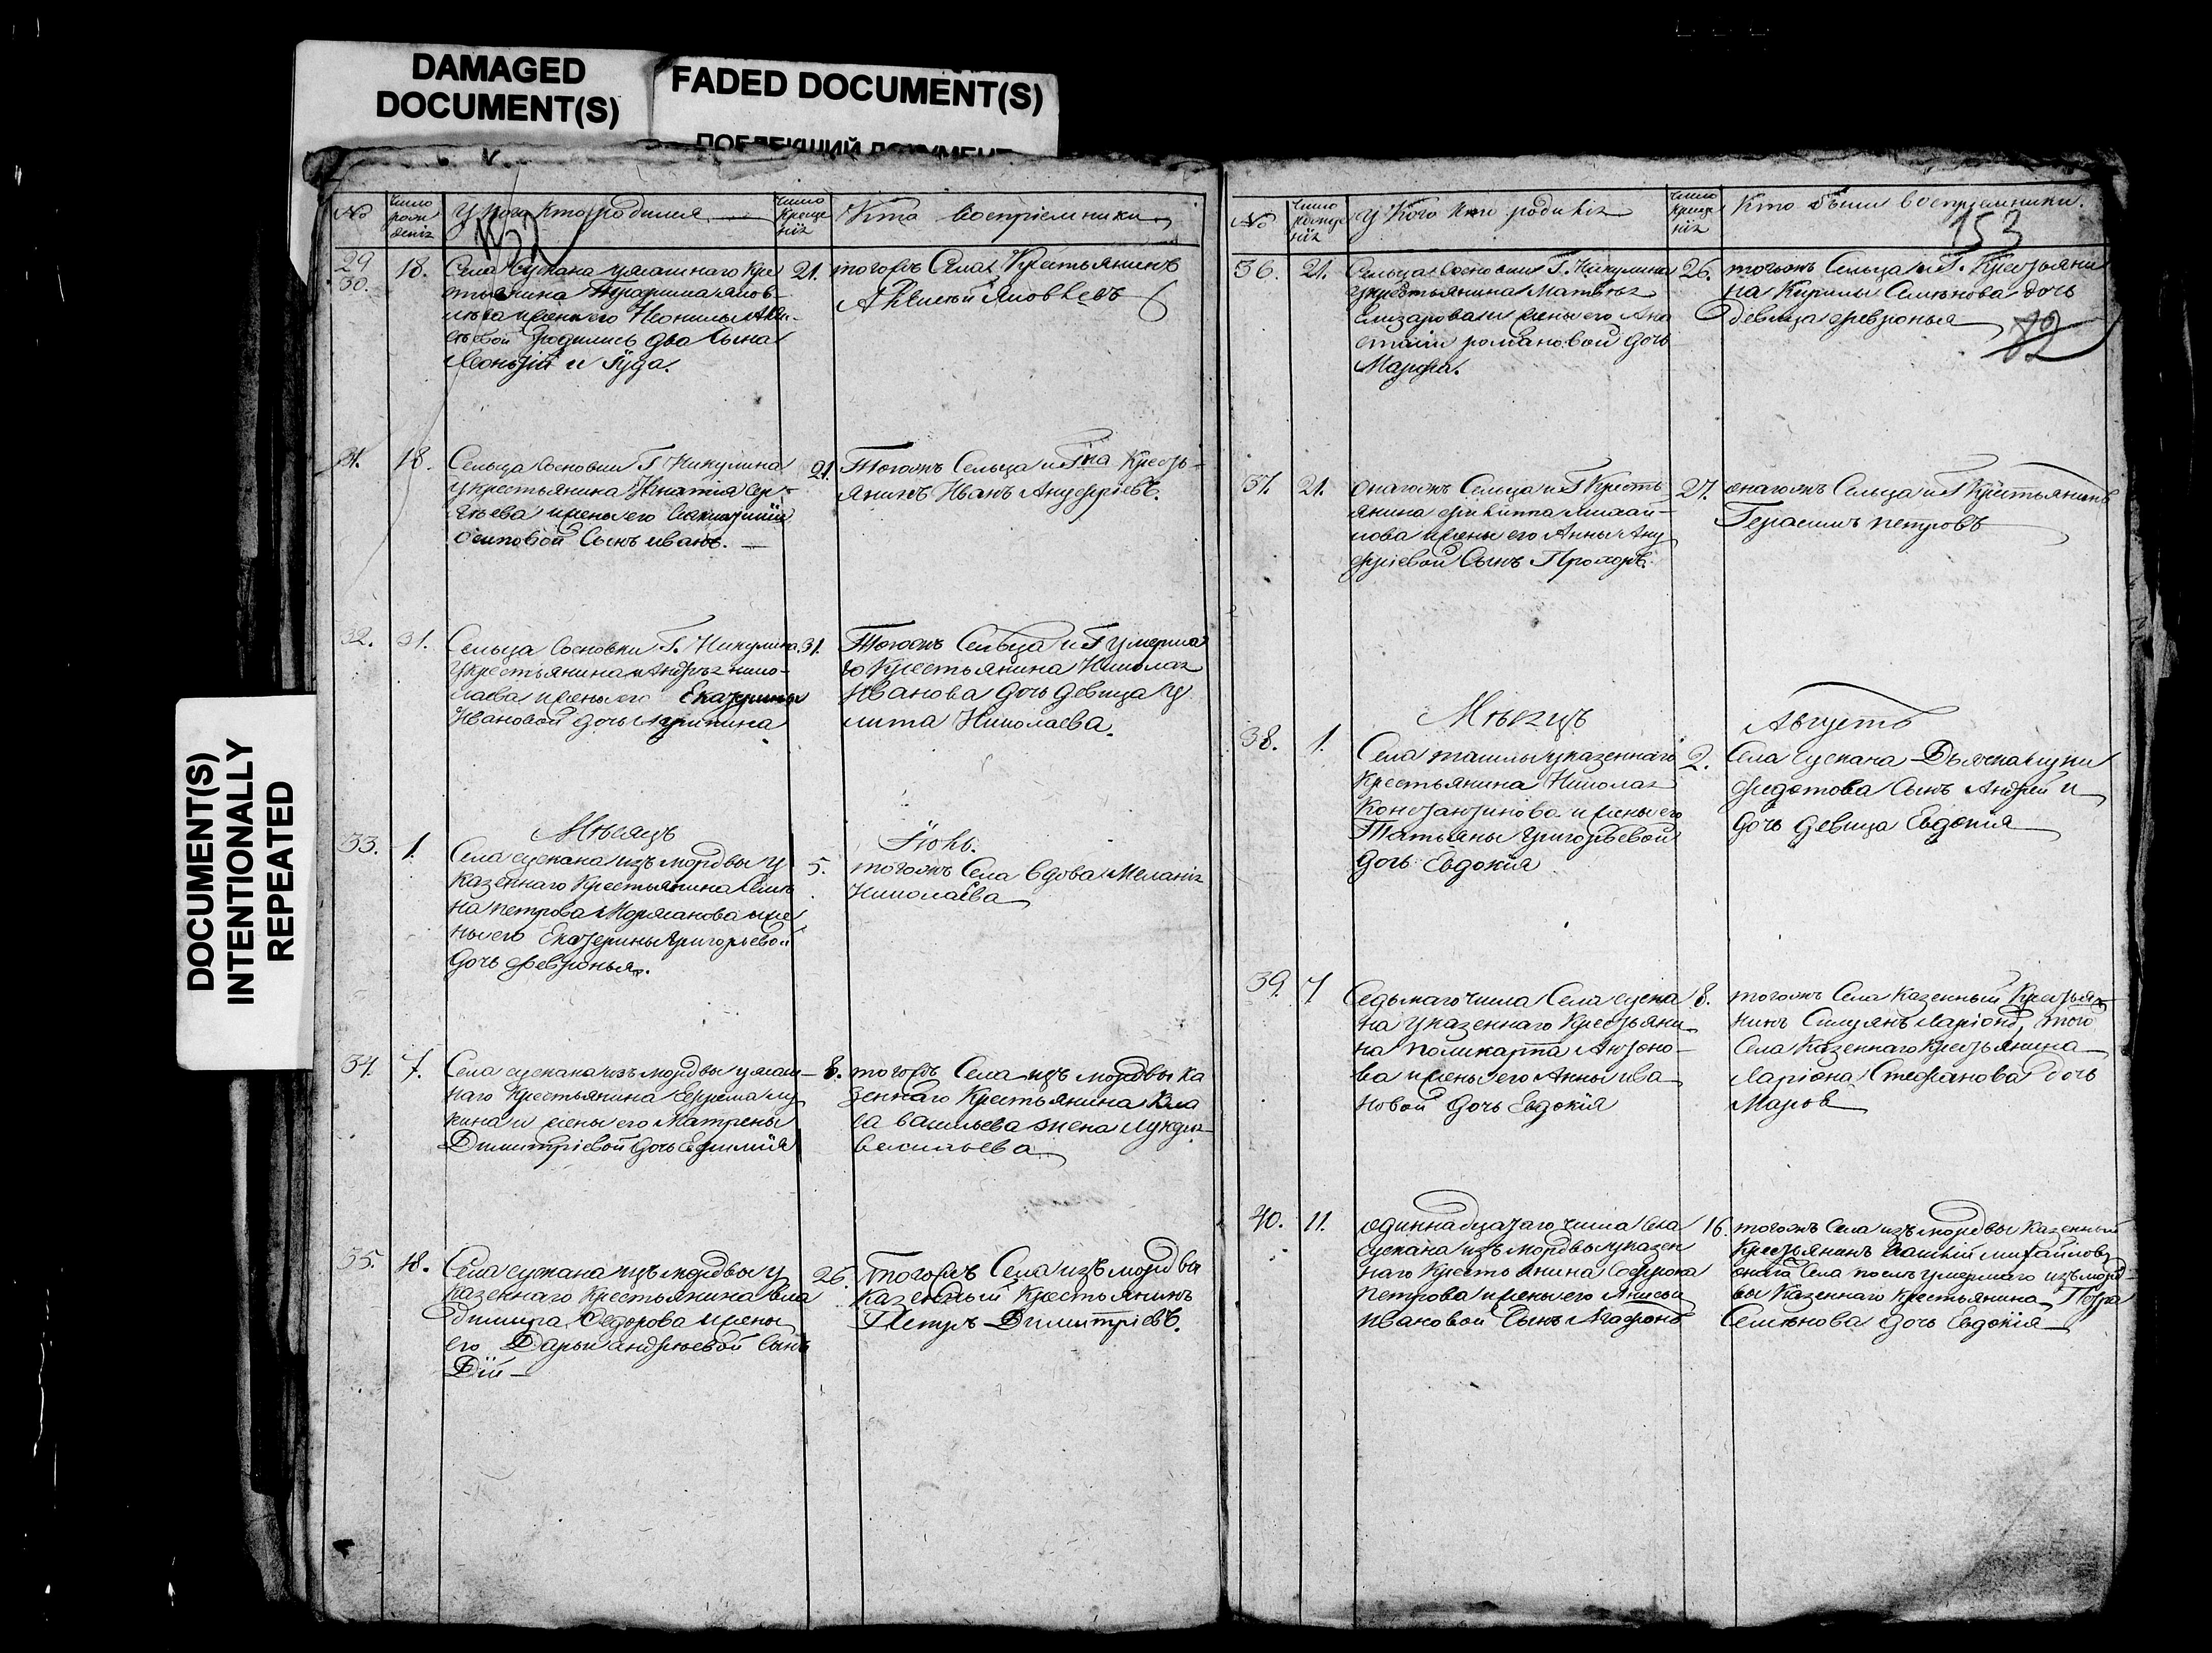 DAMAGED
DOCUMENT(S)
FADED DOCUMENT(S)
DOCUMENT(S)
INTENTIONALLY
REPEATED
№ число рож денія У кого кто родился Число креще нія Кто воспріемники
132
29 30. 18. Села Сускана уяшашнаго кре
стьянина
и жены его Неонилы
родились два сына
Леонтій и Іуда.
21. тогожъ Села Крестьянинъ
Алексѣй Яковлевъ
31. 18. Сельца Сосновки Г. Никулина
у крестьянина Игнатія Сер
гѣева и жены его
Осиповой Сынъ Иванъ.
21. Тогожъ Сельца и Гна Кресть
янинъ Иванъ Ануфріевъ.
32. 31. Сельца Сосновки Г. Никулина
у крестьянина Андрея нико
лаева и жены его Екатерины
Ивановой дочь Агрипина
31. Тогожъ Сельца и Г умерша
го Крестьянина Николая
Иванова дочь девица У
лита Николаева.
Мѣсяцъ Іюль.
33. 1. Села сускана изъ мордвы у
казеннаго Крестьянина Семе
на петрова и же
ны его Екатерины Григорьевой
дочь февронья.
5. тогожъ Села вдова Меланія
Николаева
34. 7. Села сускана изъ мордвы
наго Крестьянина Ефрема лу
кина и жены его Матрены
Димитріевой дочь Ефимія
8. тогожъ Села изъ мордвы ка
зеннаго Крестьянина
васильева жена Лукія
васильева
35. 18. Села сускана изъ мордвы у
казеннаго Крестьянина вла
димира Федорова и жены
его Дарьи андреевой сынъ
Дій
26. тогожъ Села изъ мордвы
казенный Крестьянинъ
Петръ Димитріевъ.
№ число рожде нія у кого кто родился число креще нія Кто были воспріемники.
153
36. 21. Сельца Сосновки Г. Никулина
у крестьянина Матвея
Елизарова и жены его Ана
стасіи романовой дочь
Марфа.
26. тогожъ Сельца и Г. Крестьяни
на Кирилы Семенова дочь
девица февронья
37. 21. онагожъ Сельца и Г Кресть
янина филиппа михай
лова и жены его Анны Ану
фріевой Сынъ Прохоръ.
27. онагожъ Сельца и Г Крестьянинъ
Герасимъ петровъ
Мѣсяцъ Августъ
38. 1. Села ташлы у казеннаго
Крестьянина Николая
Константинова и жены его
Татьяны Григорьевой
дочь Евдокія
2. Села Сускана Дьячка луки
федотова Сынъ Андрей и
дочь девица Евдокія
39. 7. Седьмаго числа Села суска
на у казеннаго Крестьяни
на поликарпа Антоно
ва и жены его Анны ива
новой дочь Евдокія
8. тогожъ Села Казенный Крестья
нинъ Силуянъ Ларіоновъ, того
Села Казеннаго Крестьянина
Ларіона Стефанова дочь
Марфа
40. 11. одиннадцатаго числа Села
сускана изъ мордвы у казен
наго Крестьянина Софрона
петрова и жены его Анисьи
Ивановой Сынъ Агафонъ
16. тогожъ Села изъ мордвы казенный
Крестьянинъ михайловъ
онаго Села послѣ умершаго изъ морд
вы Казеннаго Крестьянина Петра
Семенова дочь Евдокія